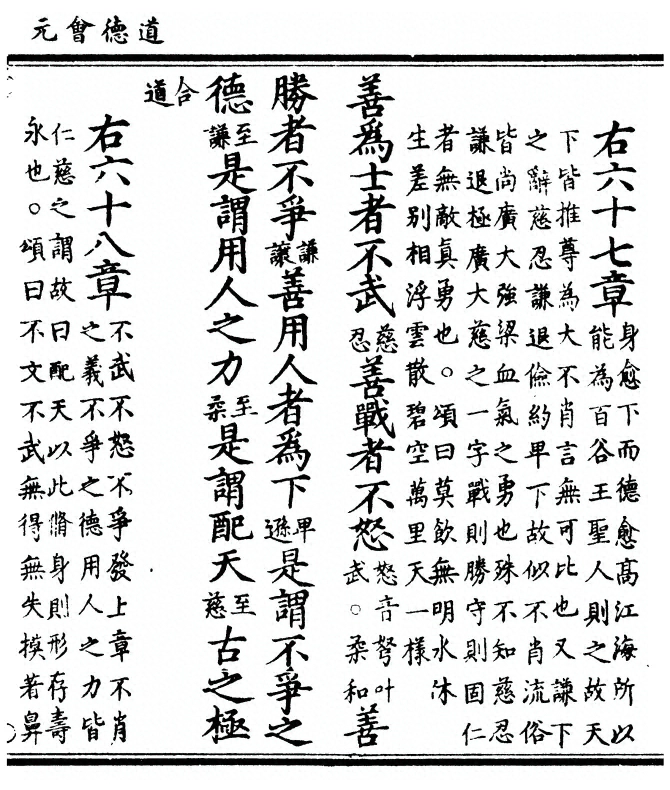 道德會元
右六十七章身愈下而德愈高江海所以
能為百谷王聖人則之故天
下皆推尊為大不肖言無可比也又謙下
之辭慈忍謙退儉約卑下故似不肖流俗
皆尚廣大強梁血氣之勇也殊不知慈忍
謙退極廣大慈之一字戰則勝守則固仁
者無敵真勇也。頌曰莫飲無明水休
生差别相浮雲散碧空萬里天一樣
善為士者不武慈忍善戰者不怒怒音弩叶武。柔和善
勝者不爭謙讓善用人者為下卑遜是謂不爭之
德至謙是謂用人之力至柔是謂配天至慈古之極
合道
右六十八章不武不怒不爭發上章不肖
之義不爭之德用人之力皆
仁慈之謂故曰配天以此脩身則形存壽
永也。頌曰不文不武無得無失摸著鼻